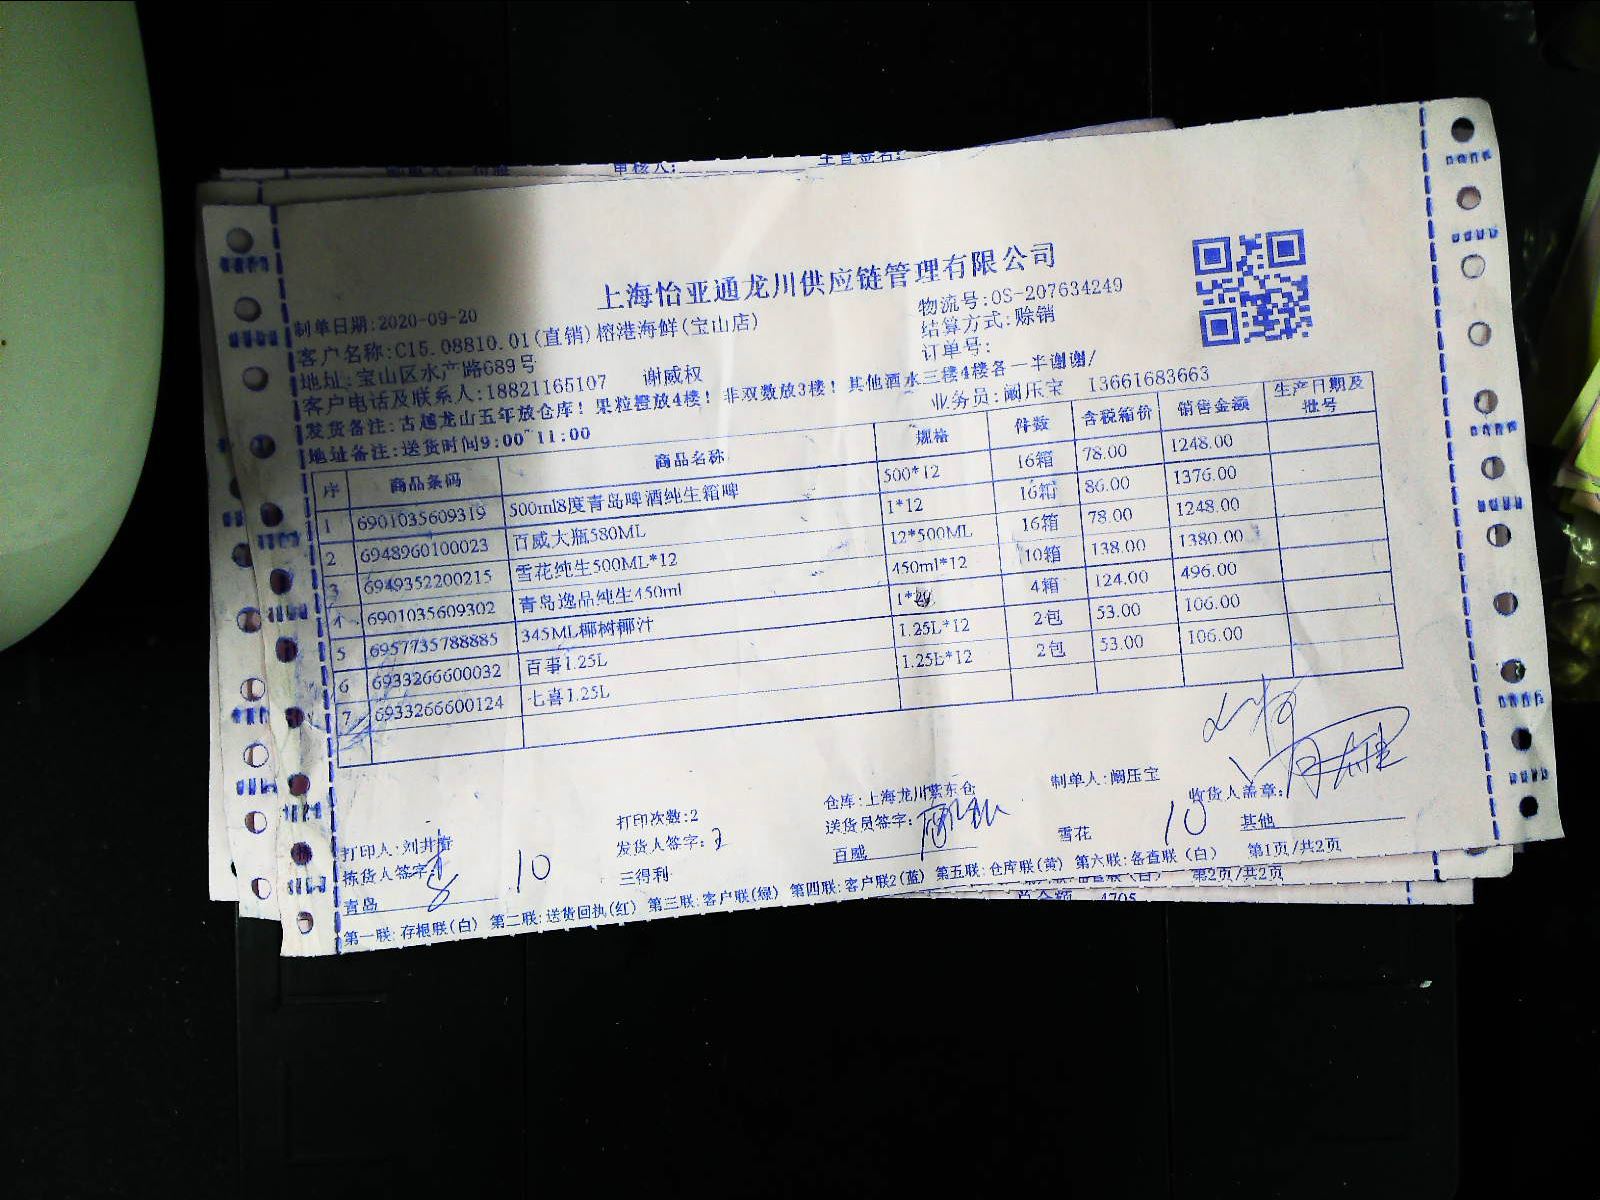 审核人: 主管签名:
上海怡亚通龙川供应链管理有限公司
制单日期:2020-09-20 物流号:OS-207634249
客户名称:C15.08810.01(直销)榕港海鲜(宝山店) 结算方式:赊销
地址:宝山区水产路689号 订单号:
客户电话及联系人:18821165107 谢威权
发货备注:古越龙山五年放仓库!果粒橙放4楼!非双数放3楼!其他酒水三楼4楼各一半谢谢!
地址备注:送货时间9:00 11:00 业务员:阚压宝 13661683663
序 商品条码 商品名称 规格 件数 含税箱价 销售金额 生产日期及批号
1 6901035609319 500ml8度青岛啤酒纯生箱啤 500*12 16箱 78.00 1248.00
2 6948960100023 百威大瓶580ML 1*12 16箱 86.00 1376.00
3 6949352200215 雪花纯生500ML*12 12*500ML 16箱 78.00 1248.00
4 6901035609302 青岛逸品纯生450ml 450ml*12 10箱 138.00 1380.00
5 6957735788885 345ML椰树椰汁 1* 4箱 124.00 496.00
6 6933266600032 百事1.25L 1.25L*12 2包 53.00 106.00
7 6933266600124 七喜1.25L 1.25L*12 2包 53.00 106.00
打印人:刘井春 打印次数:2 仓库:上海龙川紫东仓 制单人:阚压宝
拣货人签字: 发货人签字: 送货员签字: 收货人盖章:
青岛 8 10 三得利 百威 雪花 10 其他
第一联:存根联(白) 第二联:送货回执(红) 第三联:客户联(绿) 第四联:客户联2(蓝) 第五联:仓库联(黄) 第六联:备查联(白) 第1页/共2页
第2页/共2页
总金额 4705